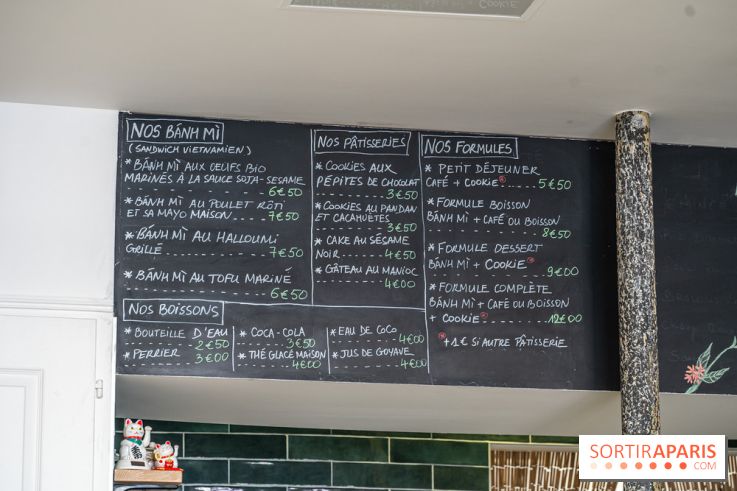 NOS BÁNH MÌ
(SANDWICH VIETNAMIEN)
* BÁNH MÌ AUX OEUFS BIO
MARINÉS À LA SAUCE SOJA-SESAME
6€50
* BÁNH MÌ AU POULET RÔTI
ET SA MAYO MAISON 7€50
* BÁNH MÌ AU HALLOUMI
GRILLÉ 7€50
* BÁNH MÌ AU TOFU MARINÉ
6€50
NOS PÂTISSERIES
* COOKIES AUX
PÉPITES DE CHOCOLAT
3€50
* COOKIES AU PANDAN
ET CACAHUÈTES
3€50
* CAKE AU SÉSAME
NOIR 4€50
* GÂTEAU AU MANIOC
4€00
NOS FORMULES
* PETIT DÉJEUNER
CAFÉ + COOKIE* 5€50
* FORMULE BOISSON
BÁNH MÌ + CAFÉ OU BOISSON
8€50
* FORMULE DESSERT
BÁNH MÌ + COOKIE*
9€00
* FORMULE COMPLÈTE
BÁNH MÌ + CAFÉ OU BOISSON
+ COOKIE* 12€00
*+1€ SI AUTRE PÂTISSERIE
NOS BOISSONS
* BOUTEILLE D'EAU
2€50
* PERRIER 3€00
* COCA-COLA
3€50
* THÉ GLACÉ MAISON
4€00
* EAU DE COCO
4€00
* JUS DE GOYAVE
4€00
SORTIRAPARIS
.COM